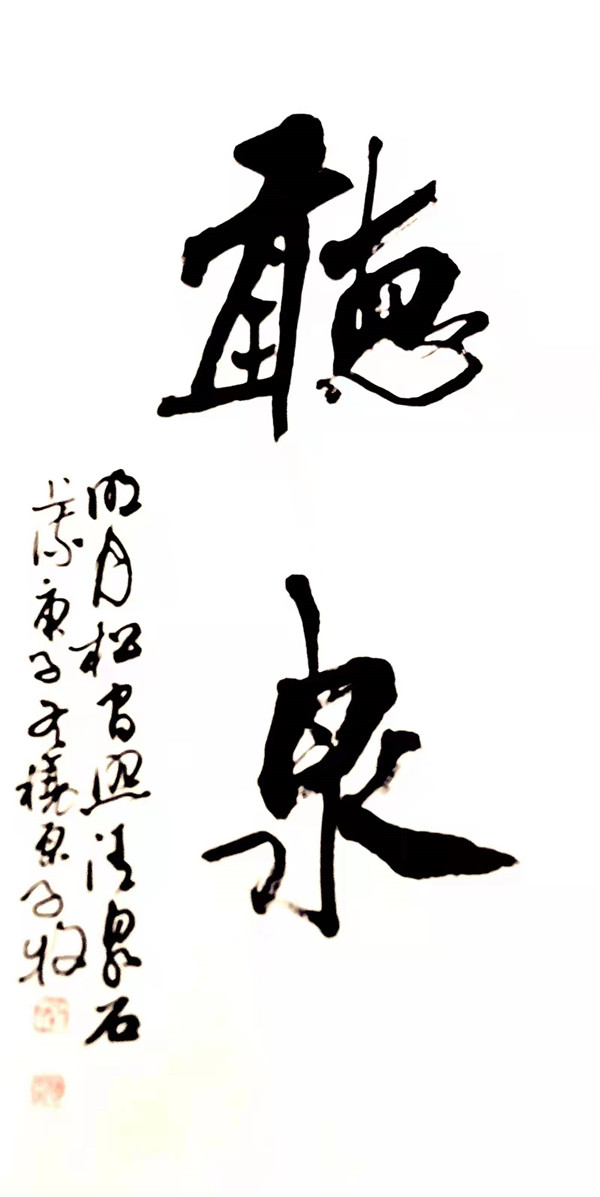 聽泉
明月松間照清泉石
上流庚子子牧